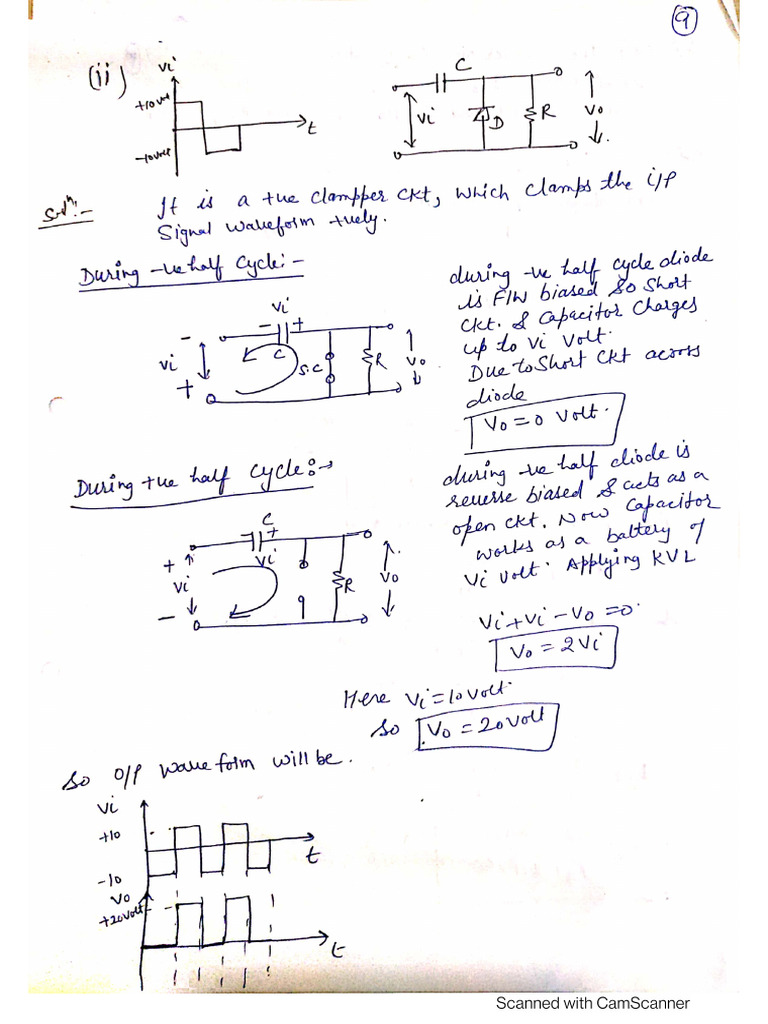 9
(ii)
Vi
+10volt
-10volt
t
C
Vi
D
R
Vo
Solⁿ:-
It is a +ue Clampper Ckt, which clamps the i/p
Signal waveform +uely.
During -ve half Cycle:-
during -ve half cycle diode
is F/W biased so short
Ckt. & Capacitor Charges
up to Vi Volt.
Due to Short Ckt across
diode
Vo = 0 Volt.
Vi
- +
-
Vi
+
C
S.C
R
Vo
During +ue half cycle:→
during -ve half diode is
reverse biased & acts as a
open ckt. Now Capacitor
works as a battery of
Vi volt. Applying KVL
Vi+Vi-Vo=0.
Vo = 2Vi
C
+
Vi
+
Vi
-
R
Vo
Here Vi=10volt.
So Vo = 20volt
So O/P waveform will be.
Vi
+10
-10
t
Vo
+20volt
t
Scanned with CamScanner